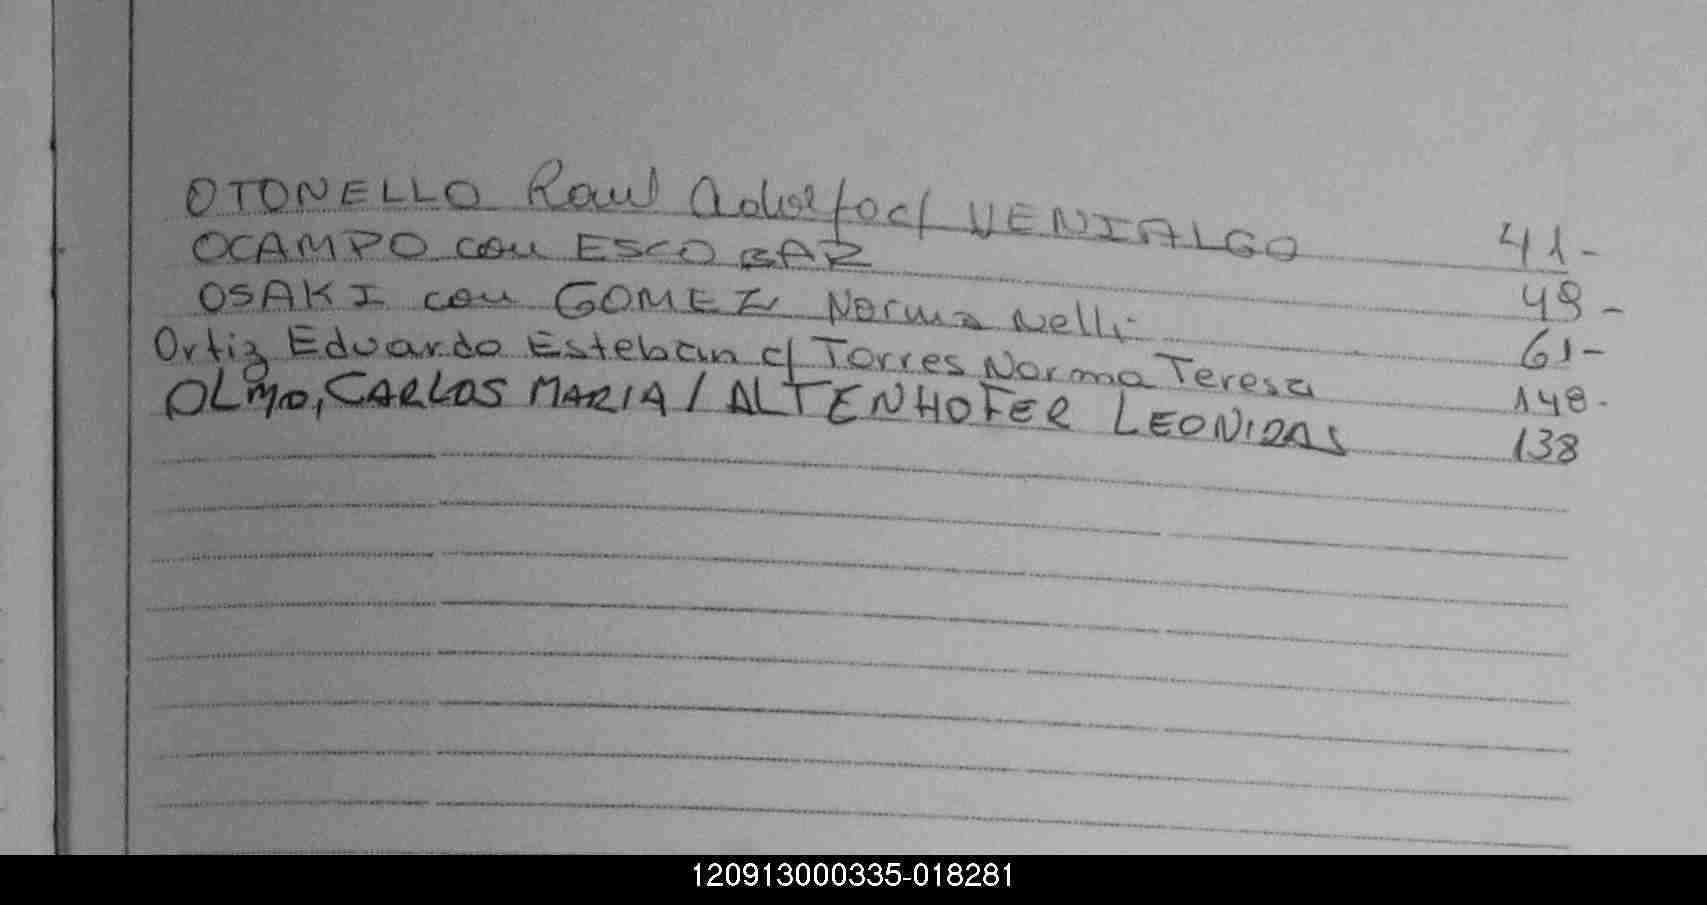 OTONELLO Raul Adolfo c/ VENIALGO 41-
OCAMPO con ESCOBAR 49-
OSAKI con GOMEZ Norma Nelli 61-
Ortiz Eduardo Esteban c/ Torres Norma Teresa 148-
OLMO, CARLOS MARIA / ALTENHOFER LEONIDAS 138
120913000335-018281